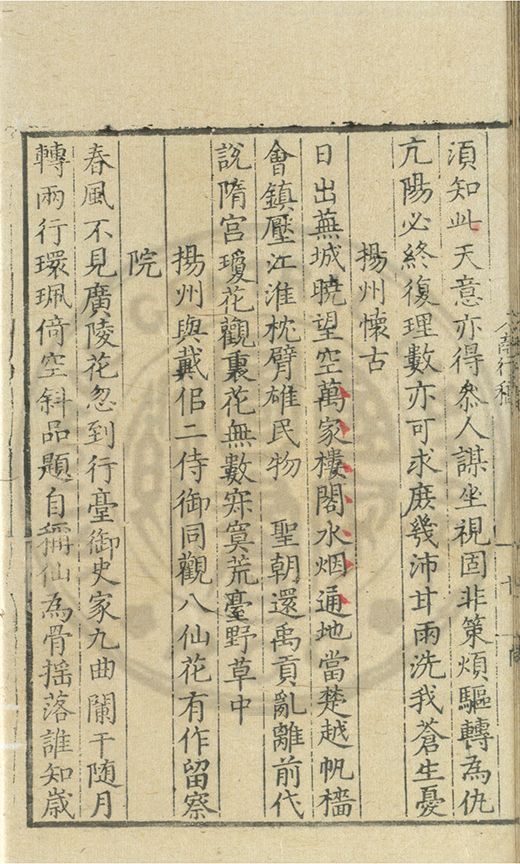 須知此天意亦得叅人謀坐視固非策煩驅轉為仇
亢陽必終復理數亦可求庶幾沛甘雨洗我蒼生憂
揚州懷古
日出蕪城曉望空萬家樓閣水烟通地當楚越帆檣
會鎮壓江淮枕臂雄民物　聖朝還禹貢亂離前代
說隋宮瓊花觀裏花無數寂寞荒臺野草中
揚州與戴佀二侍御同觀八仙花有作留察
院
春風不見廣陵花忽到行臺御史家九曲闌干随月
轉兩行環珮倚空斜品題自稱仙為骨揺落誰知歳